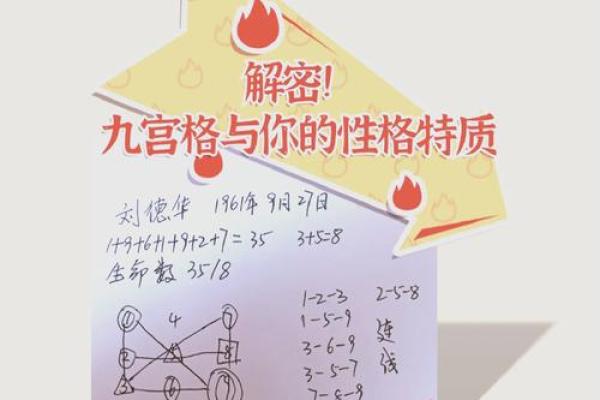 解密!
九宫格与你的性格特质
刘德华 1961年9月27日
1+9+6+1+9+2+7=35 3+5=8
生命数 35/8
1-2-3 2-5-8
1-5-9 连线
3-6-9
3-5-7
7-8-9
1 4 7
2 5 8
3 6 9